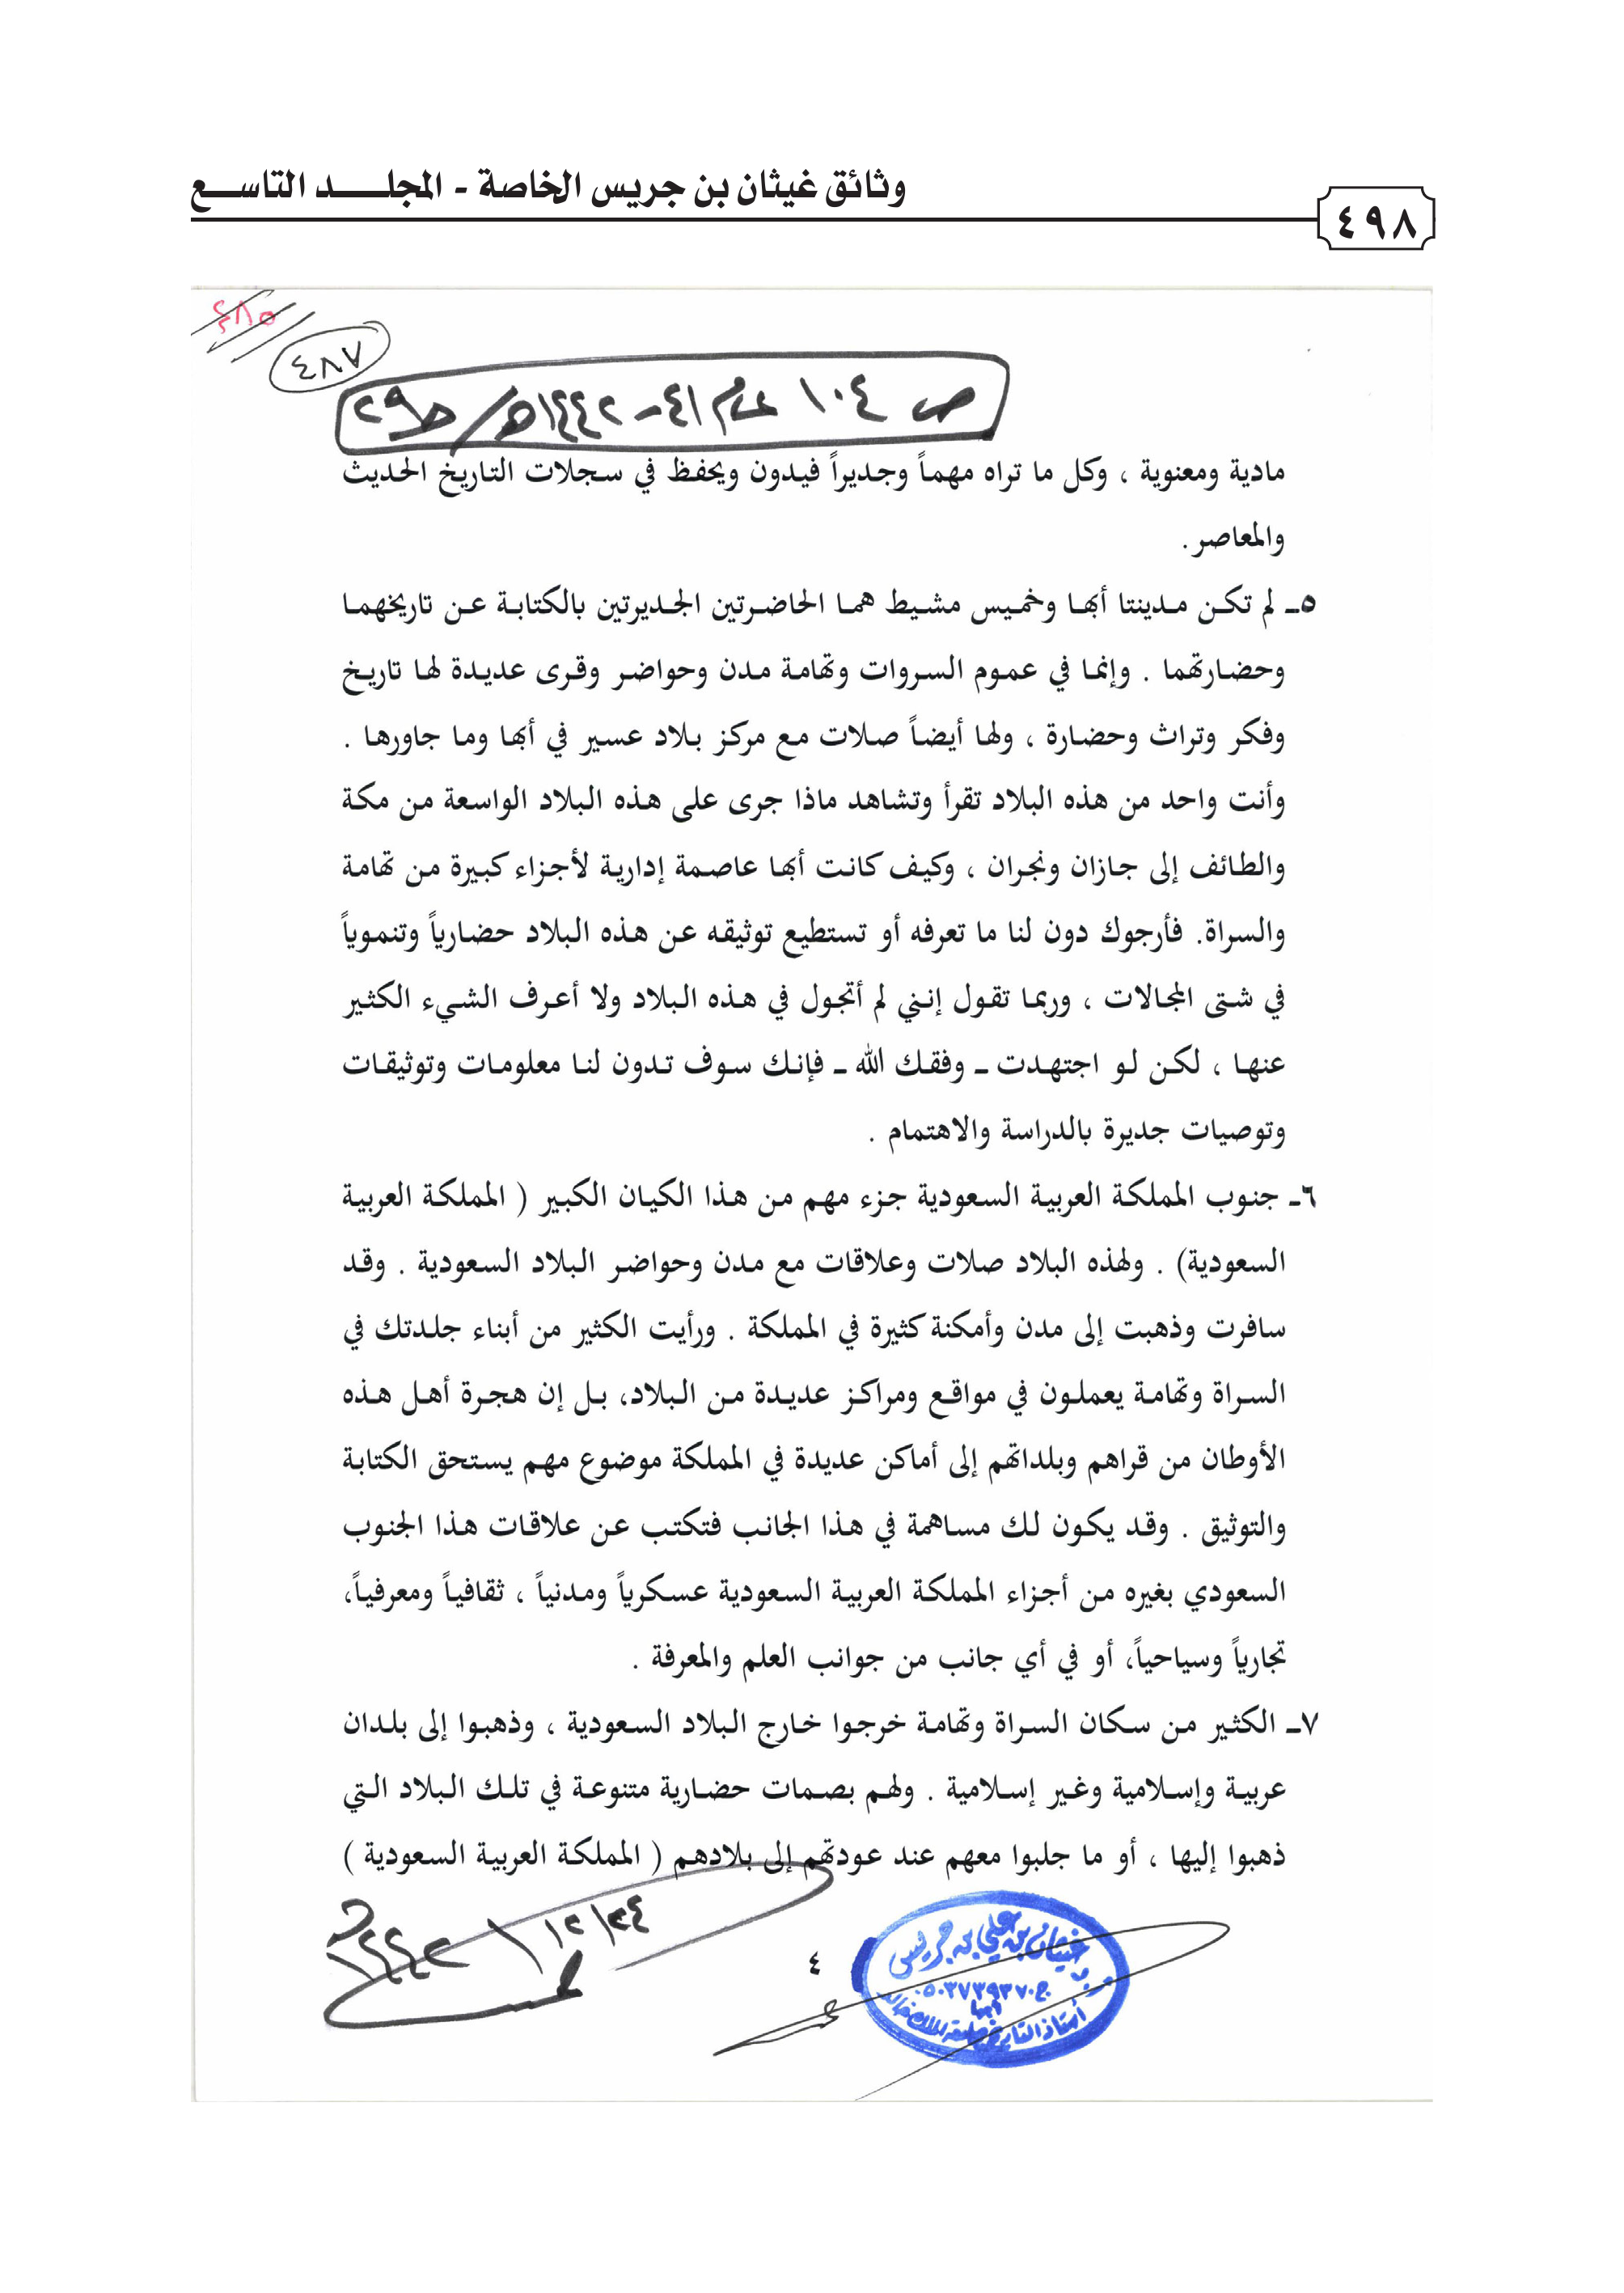 وثائق غيثان بن جريس الخاصة - المجلد التاسع
٤٩٨
٤٨٥
٤٨٧
ص ١٠٤ عام ٤١-١٤٤٢هـ/
مادية ومعنوية ، وكل ما تراه مهماً وجديراً فيدون ويحفظ في سجلات التاريخ الحديث
والمعاصر.
٥ـ لم تكن مدينتا أبها وخميس مشيط هما الحاضرتين الجديرتين بالكتابة عن تاريخهما
وحضارتهما . وإنما في عموم السروات وتهامة مدن وحواضر وقرى عديدة لها تاريخ
وفكر وتراث وحضارة ، ولها أيضاً صلات مع مركز بلاد عسير في أبها وما جاورها .
وأنت واحد من هذه البلاد تقرأ وتشاهد ماذا جرى على هذه البلاد الواسعة من مكة
والطائف إلى جازان ونجران ، وكيف كانت أبها عاصمة إدارية لأجزاء كبيرة من تهامة
والسراة. فأرجوك دون لنا ما تعرفه أو تستطيع توثيقه عن هذه البلاد حضارياً وتنموياً
في شتى المجالات ، وربما تقول إنني لم أتجول في هذه البلاد ولا أعرف الشيء الكثير
عنها ، لكن لو اجتهدت ـ وفقك الله ـ فإنك سوف تدون لنا معلومات وتوثيقات
وتوصيات جديرة بالدراسة والاهتمام .
٦ـ جنوب المملكة العربية السعودية جزء مهم من هذا الكيان الكبير ( المملكة العربية
السعودية) . ولهذه البلاد صلات وعلاقات مع مدن وحواضر البلاد السعودية . وقد
سافرت وذهبت إلى مدن وأمكنة كثيرة في المملكة . ورأيت الكثير من أبناء جلدتك في
السراة وتهامة يعملون في مواقع ومراكز عديدة من البلاد، بل إن هجرة أهل هذه
الأوطان من قراهم وبلداتهم إلى أماكن عديدة في المملكة موضوع مهم يستحق الكتابة
والتوثيق . وقد يكون لك مساهمة في هذا الجانب فتكتب عن علاقات هذا الجنوب
السعودي بغيره من أجزاء المملكة العربية السعودية عسكرياً ومدنياً ، ثقافياً ومعرفياً،
تجارياً وسياحياً، أو في أي جانب من جوانب العلم والمعرفة .
٧ـ الكثير من سكان السراة وتهامة خرجوا خارج البلاد السعودية ، وذهبوا إلى بلدان
عربية وإسلامية وغير إسلامية . ولهم بصمات حضارية متنوعة في تلك البلاد التي
ذهبوا إليها ، أو ما جلبوا معهم عند عودتهم إلى بلادهم ( المملكة العربية السعودية )
١٤٤٢/١٢/٢٤هـ
٤
غيثان بن علي بن جريس
ج٠٥٠٣٧٣٩٣٧٠
أبها
أستاذ التاريخ بجامعة الملك خالد